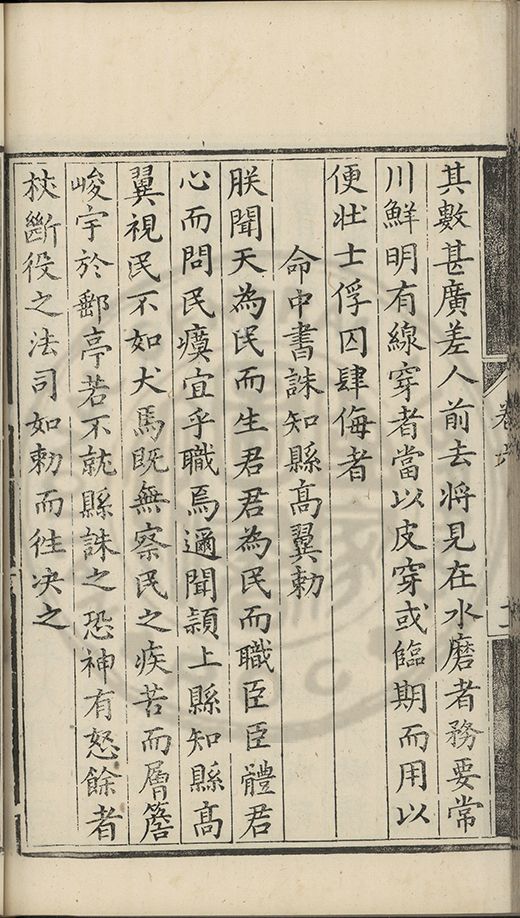 其數甚廣差人前去將見在水磨者務要常
川鮮明有線穿者當以皮穿或臨期而用以
便壯士俘囚肆侮者
命中書誅知縣高翼勅
朕聞天為民而生君君為民而職臣臣體君
心而問民瘼宜乎職焉邇聞潁上縣知縣高
翼視民不如犬馬既無察民之疾苦而層簷
峻宇於郵亭若不就縣誅之恐神有怒餘者
杖斷役之法司如勅而徃决之